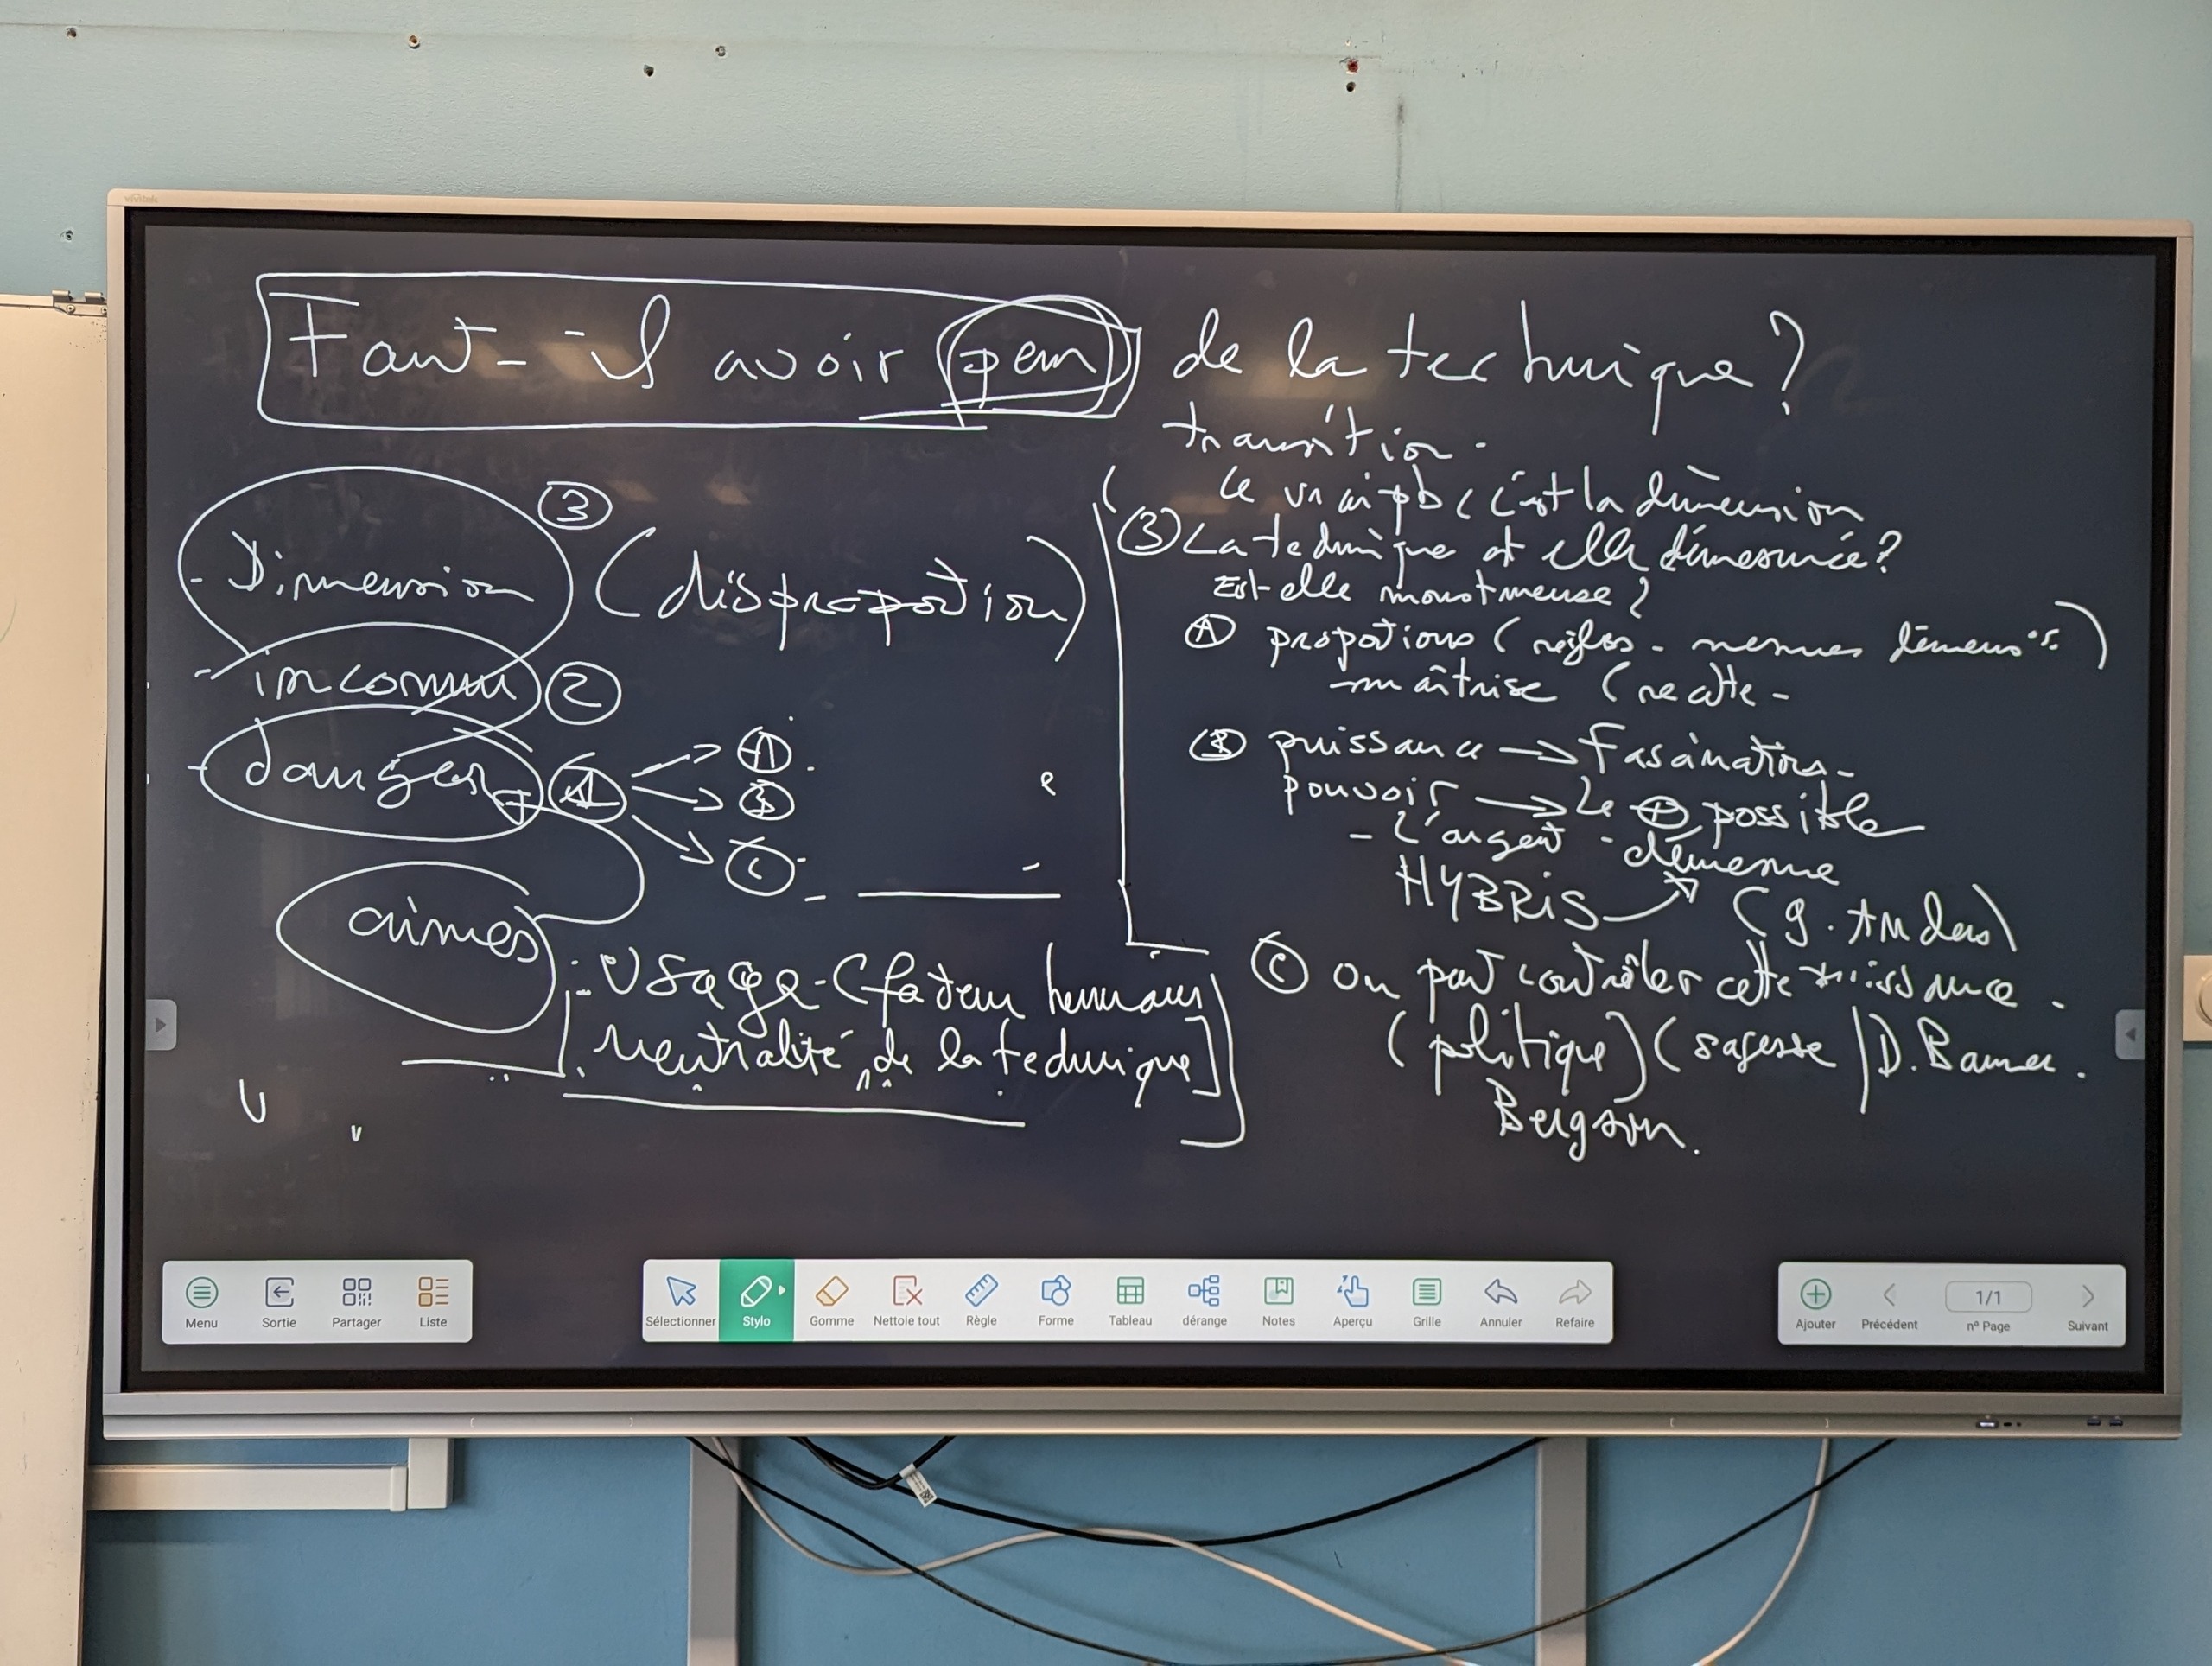 vivitek
Faut-il avoir peur de la technique ?
- Dimension ③ (disproportion)
- inconnu ②
- danger ① → Ⓐ
→ Ⓑ
→ Ⓒ
armes
- Usage - (facteur humain
. neutralité de la technique]
transition -
Le vrai pb c'est la dimension
③ La technique est elle démesurée ?
Est-elle monstrueuse ?
Ⓐ proportions (règles - mesures
maîtrise (recette -
Ⓑ puissance → fascination -
pouvoir → Le ⊕ possible
- L'argent - démesure
HYBRIS → (G. Anders)
Ⓒ on peut contrôler cette puissance -
(politique) (sagesse / D. Bourg.
Bergson.
Menu
Sortie
Partager
Liste
Sélectionner
Stylo
Gomme
Nettoie tout
Règle
Forme
Tableau
dérange
Notes
Aperçu
Grille
Annuler
Refaire
Ajouter
Précédent
1/1
n° Page
Suivant